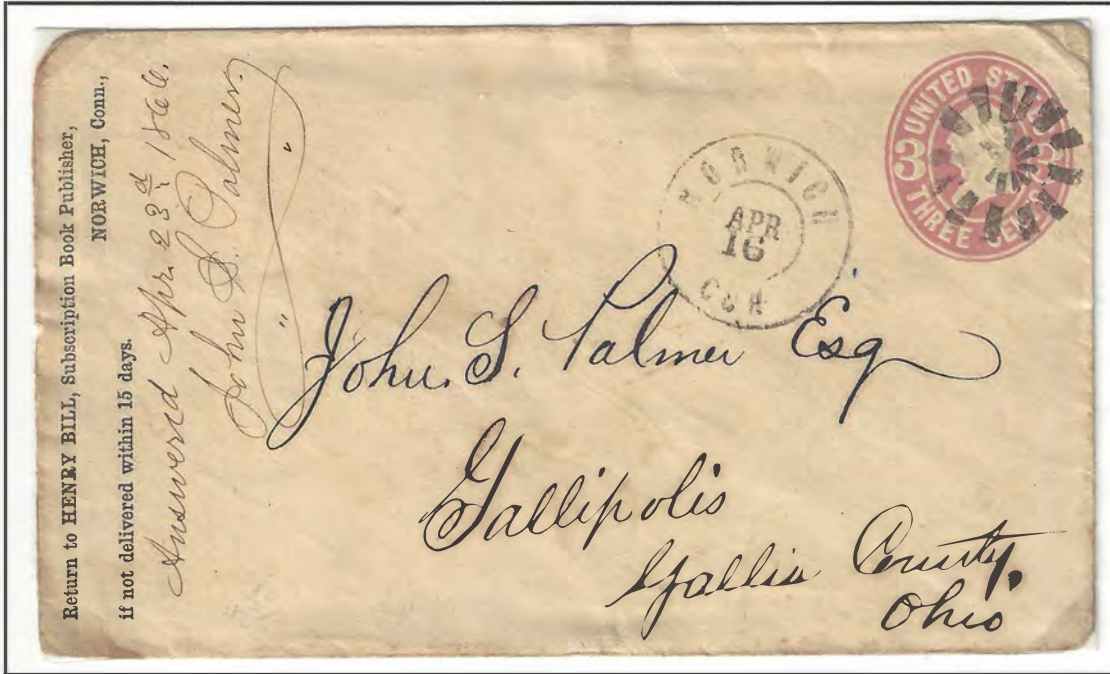 Return to HENRY BILL, Subscription Book Publisher,
NORWICH, Conn.,
if not delivered within 15 days.
Answered Apr. 23d 1866.
John S. Palmer.
UNITED
3
THREE
NORWICH
APR
16
CON
John. S. Palmer Esq
Gallipolis
Gallia County,
Ohio